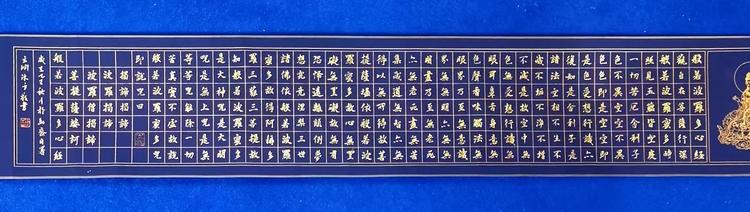 般若波羅多心經
觀自在菩薩行深
般若波羅蜜多時
照見五蘊皆空度
一切苦厄舍利子
色不異空空不異
色色即是空空即
是色受想行識亦
復如是舍利子是
諸法空相不生不
滅不垢不淨不增
不減是故空中無
色無受想行識無
眼耳鼻舌身意無
色聲香味觸法無
眼界乃至無意識
界無無明亦無無
明盡乃至無老死
亦無老死盡無苦
集滅道無智亦無
得以無所得故菩
提薩埵依般若波
羅蜜多故心無罣
礙無罣礙故無有
恐怖遠離顛倒夢
想究竟涅槃三世
諸佛依般若波羅
蜜多故得阿耨多
羅三藐三菩提故
知般若波羅蜜多
是大神咒是大明
咒是無上咒是無
等等咒能除一切
苦真實不虛故說
般若波羅蜜多咒
即說咒曰
揭諦揭諦
波羅揭諦
波羅僧揭諦
菩提薩婆訶
般若波羅多心經